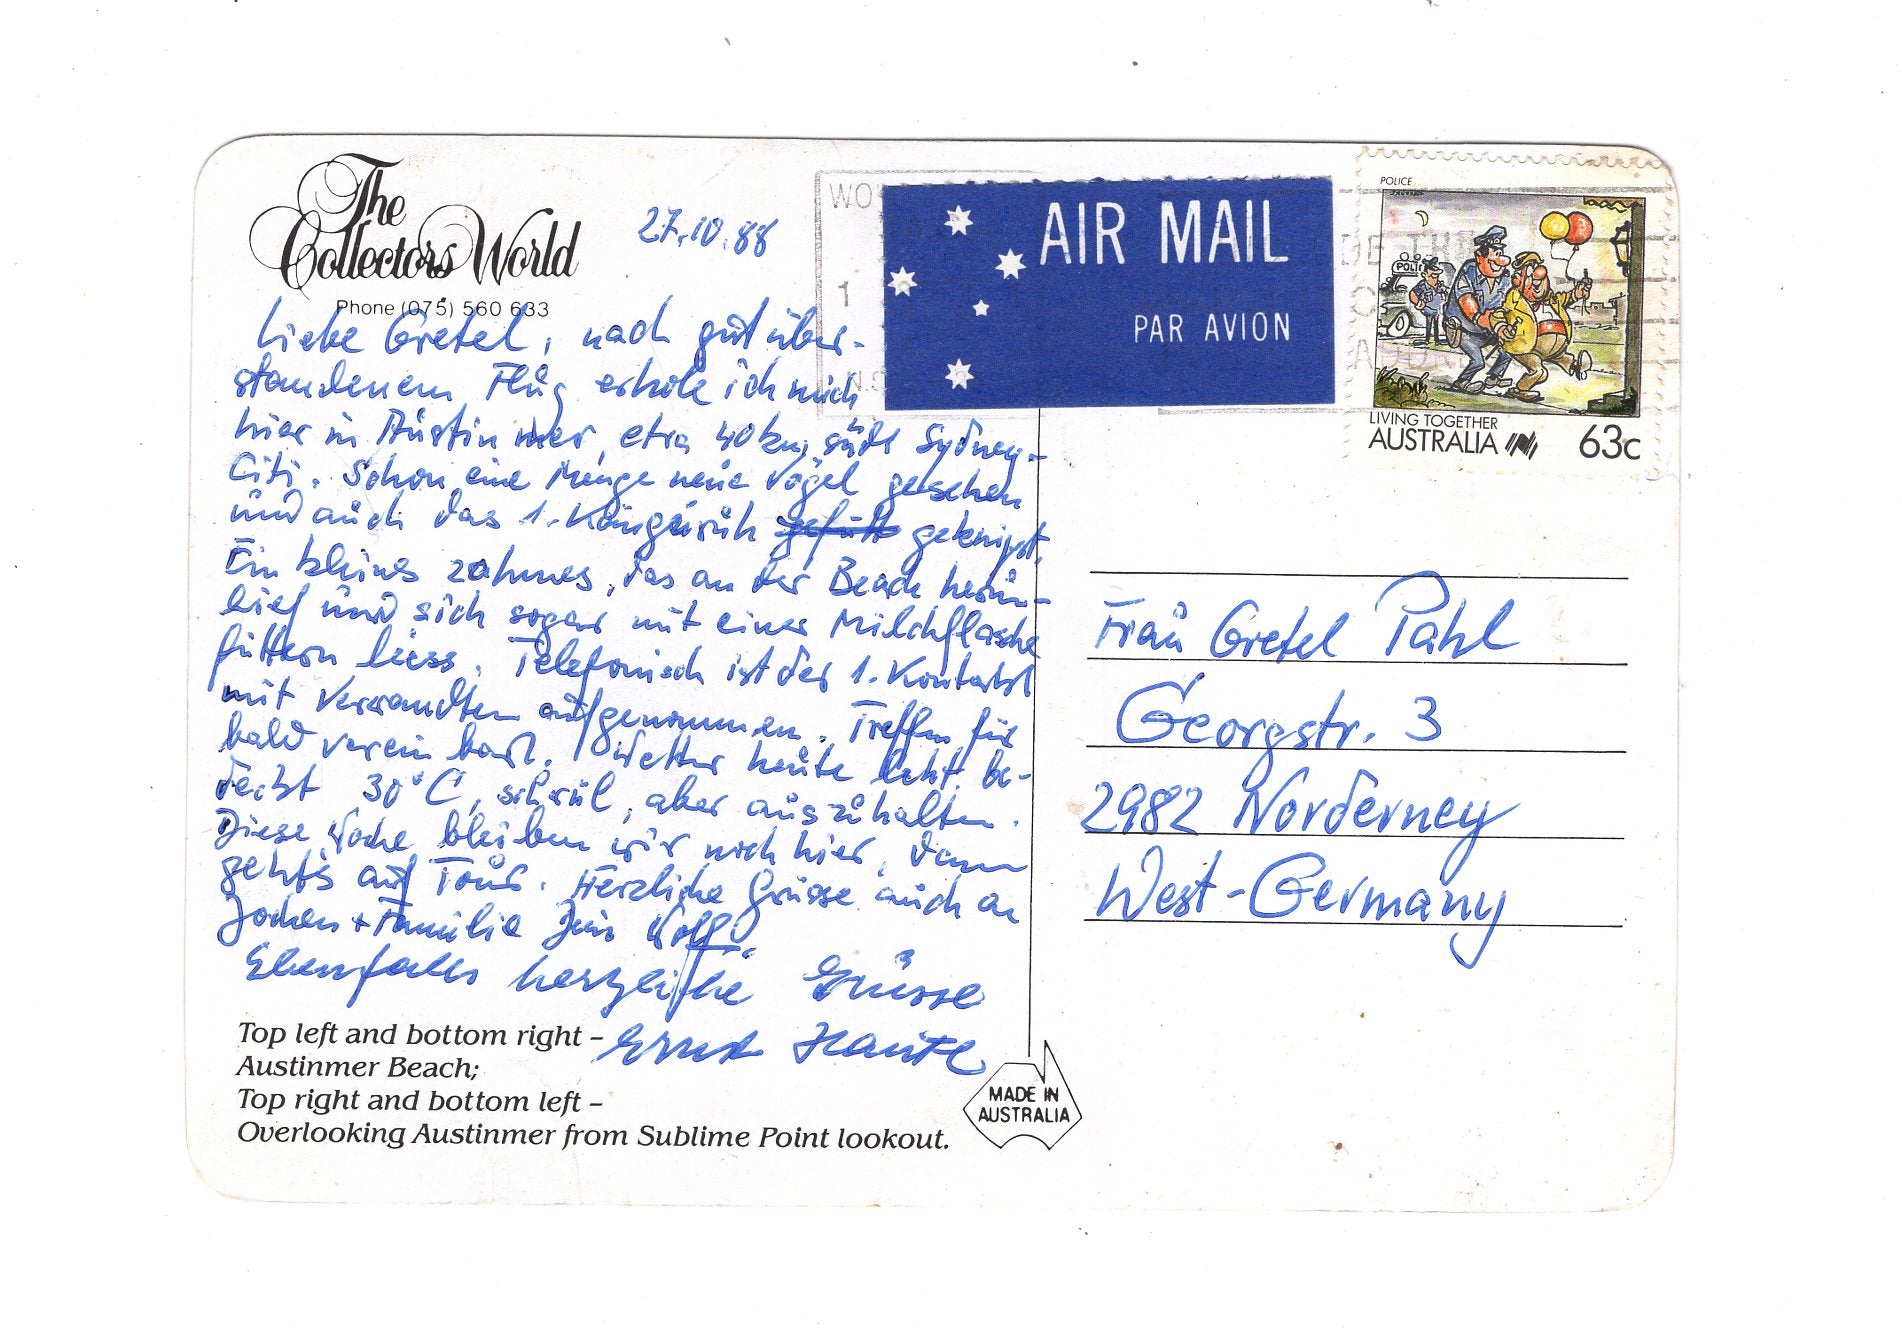 The
Collectors World
Phone (075) 560 633
27.10.88
Liebe Gretel, nach gut über-
standenem Flug erhole ich mich
hier in Austinmer, etwa 40 km südl Sydney-
Citi. Schon eine Menge neue Vögel gesehen
und auch das 1. Känguruh gefütt geknipst.
Ein kleines zahmes, das an der Beach herum-
lief und sich sogar mit einer Milchflasche
füttern liess. Telefonisch ist der 1. Kontakt
mit Verwandten aufgenommen. Treffen für
bald vereinbart. Wetter heute leicht be-
deckt 30°C, schwül, aber auszuhalten.
Diese Woche bleiben wir noch hier, dann
geht's auf Tour. Herzliche Grüsse auch an
Jochen + Familie Dein Wolf
Ebenfalls herzliche Grüsse
Ernst
Top left and bottom right –
Austinmer Beach;
Top right and bottom left –
Overlooking Austinmer from Sublime Point lookout.
MADE IN
AUSTRALIA
WO
1
N.S
AIR MAIL
PAR AVION
POLICE
POLI
LIVING TOGETHER
AUSTRALIA 63c
Frau Gretel Pahl
Georgstr. 3
2982 Norderney
West-Germany